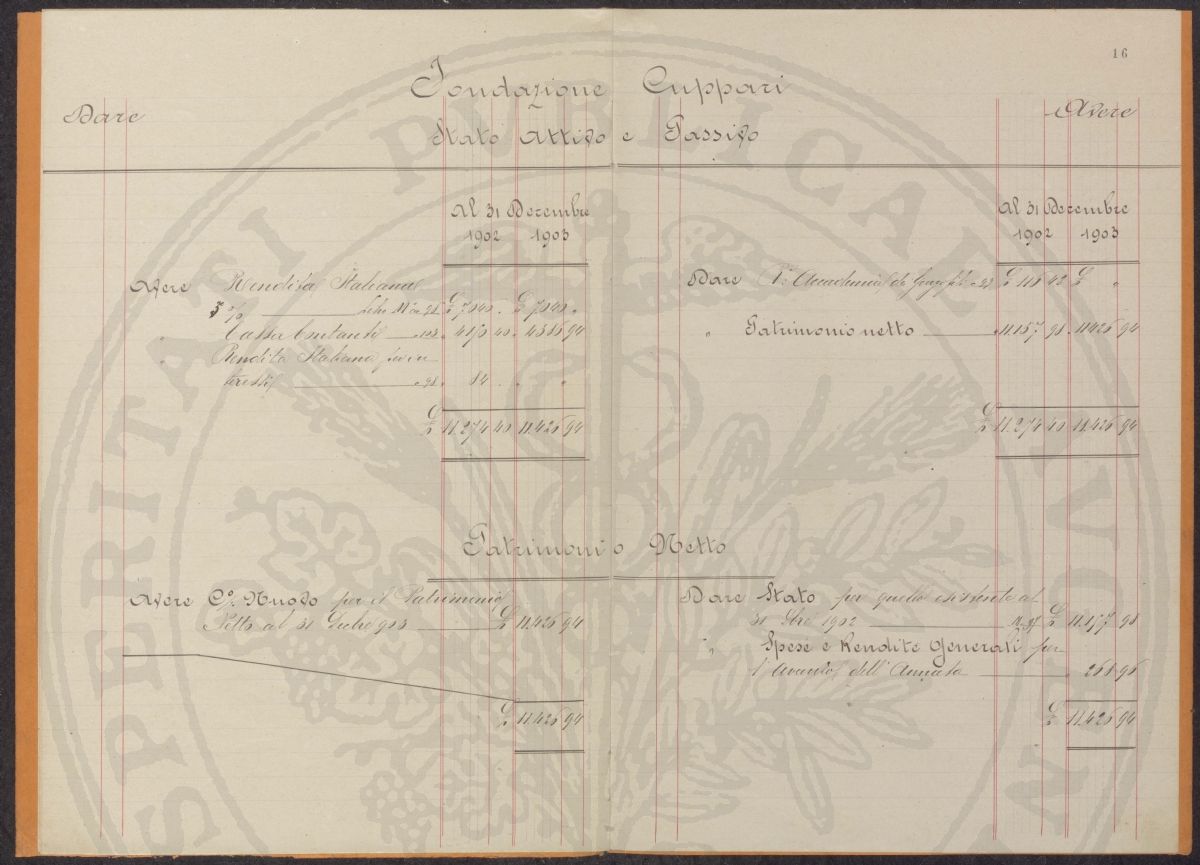 16
Fondazione Cuppari
Dare Avere
Stato Attivo e Passivo
Al 31 Decembre
1902 1903
Avere Rendita Italiana
5 % £ 7040 . £ 7040 "
" Cassa Contanti 4150 40 . 4386 94
" Rendita Italiana
84 . " "
£ 11.274 40 11.426 94
Al 31 Decembre
1902 1903
Dare Accademia £ 116 42 £ "
" Patrimonio netto " 11.157 98 . 11426 94
£ 11.274 40 11.426 94
Patrimonio Netto
Avere Co/ Nuovo per il Patrimonio
Netto al 31 £ 11.426 94
£ 11.426 94
Dare Stato per quello esistente al
31 1902 £ 98
" Spese e Rendite Generali per
l'Avanzo dell'Annata " 268 96
£ 11.426 94